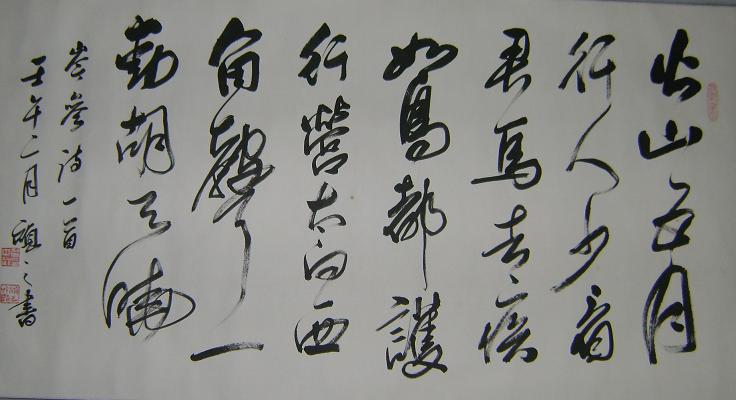 火山五月
行人少看
君馬去疾
如鳥都護
行營太白西
角聲一
動胡天曉
岑參詩一首
壬午二月 之書